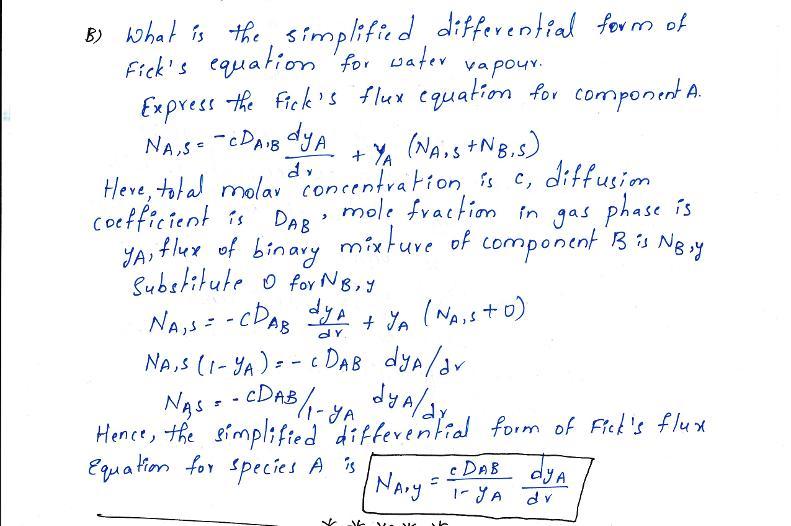 B) What is the simplified differential form of
Fick's equation for water vapour.
Express the Fick's flux equation for component A.
N_A,s = -cD_A,B dy_A/dr + y_A (N_A,s + N_B,s)
Here, total molar concentration is c, diffusion
coefficient is D_AB, mole fraction in gas phase is
y_A, flux of binary mixture of component B is N_B,y
Substitute 0 for N_B,y
N_A,s = -cD_AB dy_A/dr + y_A (N_A,s + 0)
N_A,s (1-y_A) = -cD_AB dy_A/dr
N_As = -cD_AB/1-y_A dy_A/dr
Hence, the simplified differential form of Fick's flux
Equation for species A is N_A,y = cD_AB/1-y_A dy_A/dr